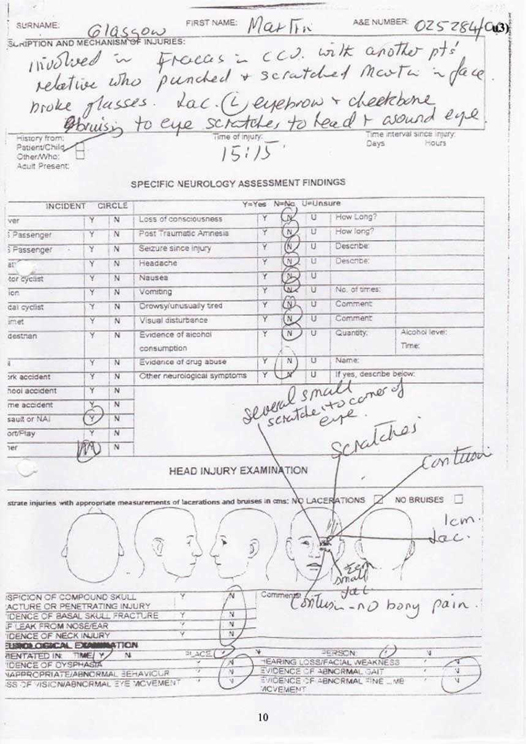 SURNAME: Glasgow FIRST NAME: Martin A&E NUMBER: 025284/
SCRIPTION AND MECHANISM OF INJURIES:
involved in Fraccas in CCU. with another pt's
relative who punched & scratched Martin in face.
broke glasses. Lac. (L) eyebrow & cheekbone
bruising to eye scratches to head & around eye.
History from: Time of injury: Time interval since injury:
Patient/Child 15:15 Days Hours
Other/Who:
Adult Present:
SPECIFIC NEUROLOGY ASSESSMENT FINDINGS
INCIDENT CIRCLE Y=Yes N=No U=Unsure
ver Y N Loss of consciousness Y N U How Long?
Passenger Y N Post Traumatic Amnesia Y N U How long?
Passenger Y N Seizure since injury Y N U Describe:
Y N Headache Y N U Describe:
tor cyclist Y N Nausea Y N U
ion Y N Vomiting Y N U No. of times:
dal cyclist Y N Drowsy/unusually tired Y N U Comment
met Y N Visual disturbance Y N U Comment
destrian Y N Evidence of alcohol Y N U Quantity: Alcohol level:
consumption Time:
Y N Evidence of drug abuse Y N U Name:
ork accident Y N Other neurological symptoms Y N U If yes, describe below:
hool accident Y N
me accident Y N
sault or NAI Y N
ort/Play Y N
her Y N
several small
scratches to corner of
eye.
Scratches
Contusion
HEAD INJURY EXAMINATION
strate injuries with appropriate measurements of lacerations and bruises in cms: NO LACERATIONS NO BRUISES
1cm.
Lac.
small
Lac
SPICION OF COMPOUND SKULL Y N Comments
ACTURE OR PENETRATING INJURY
Contusion - no bony pain.
IDENCE OF BASAL SKULL FRACTURE Y N
F LEAK FROM NOSE/EAR Y N
IDENCE OF NECK INJURY Y N
EUROLOGICAL EXAMINATION
RIENTATED IN: TIME: Y N PLACE: Y N PERSON: Y N
IDENCE OF DYSPHASIA Y N HEARING LOSS/FACIAL WEAKNESS Y N
NAPPROPRIATE/ABNORMAL BEHAVIOUR Y N EVIDENCE OF ABNORMAL GAIT Y N
SS OF VISION/ABNORMAL EYE MOVEMENT Y N EVIDENCE OF ABNORMAL FINE LIMB Y N
MOVEMENT
10